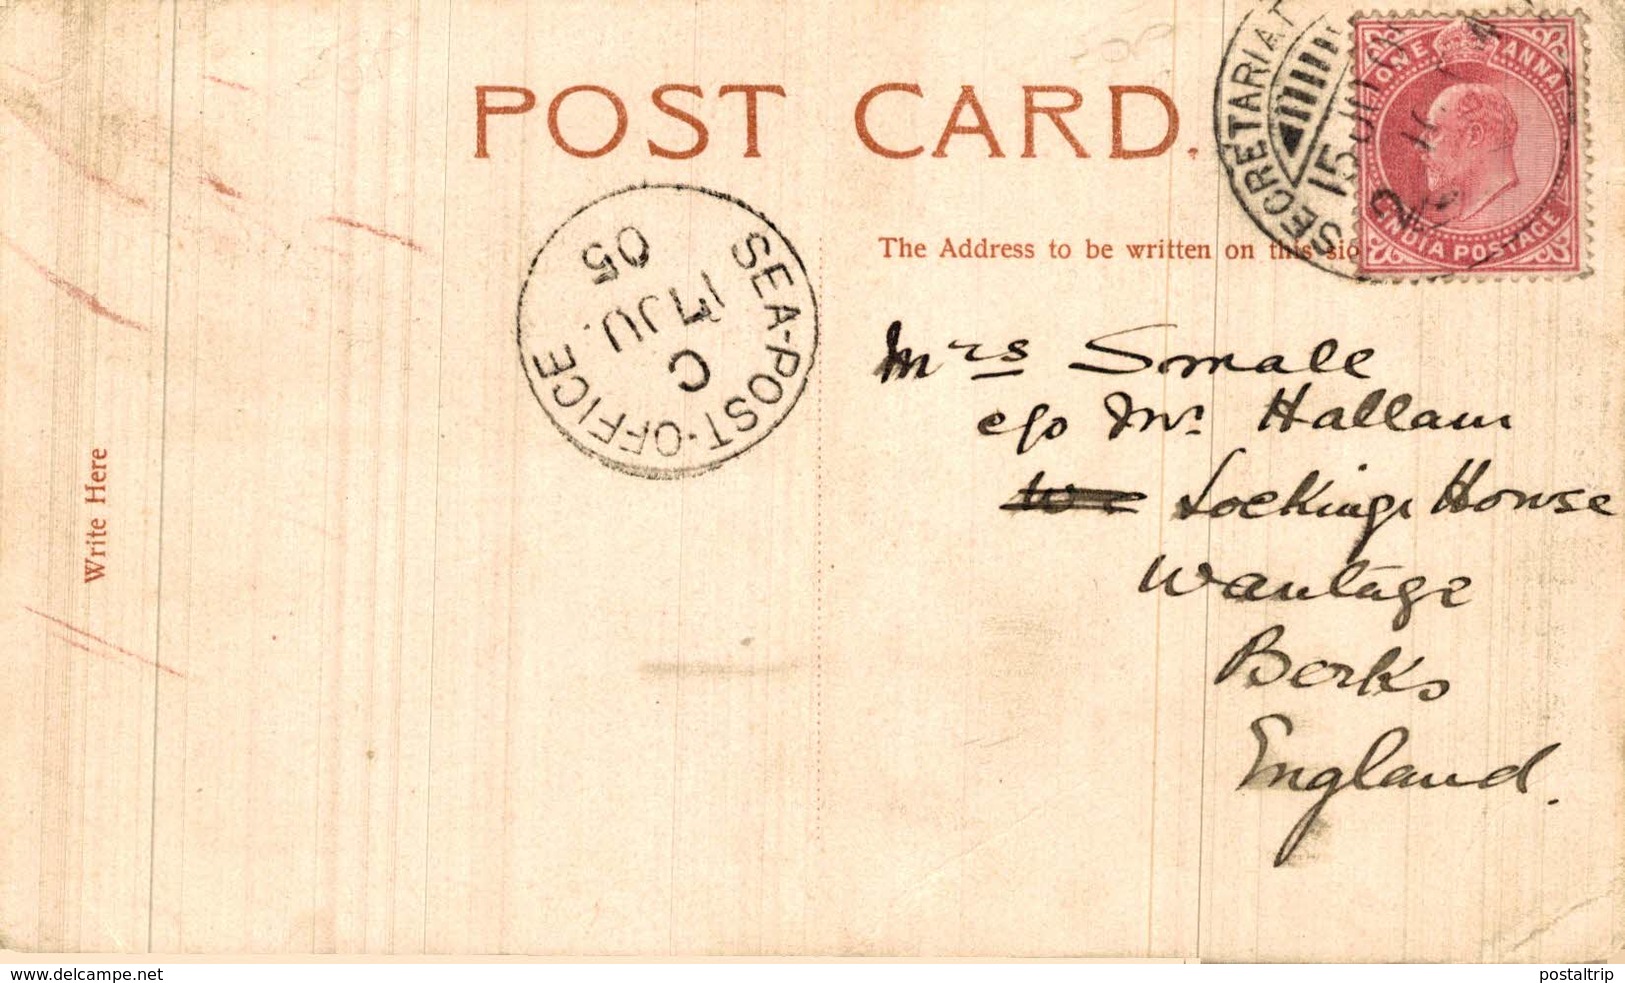 POST CARD.
SECRETARIAT
15 JU
ONE ANNA
INDIA POSTAGE
SEA-POST-OFFICE
C
17 JU.
05
The Address to be written on this
Write Here
Mrs Small
c/o Mr. Hallam
Lockinge House
Wantage
Berks
England.
www.delcampe.net
postaltrip